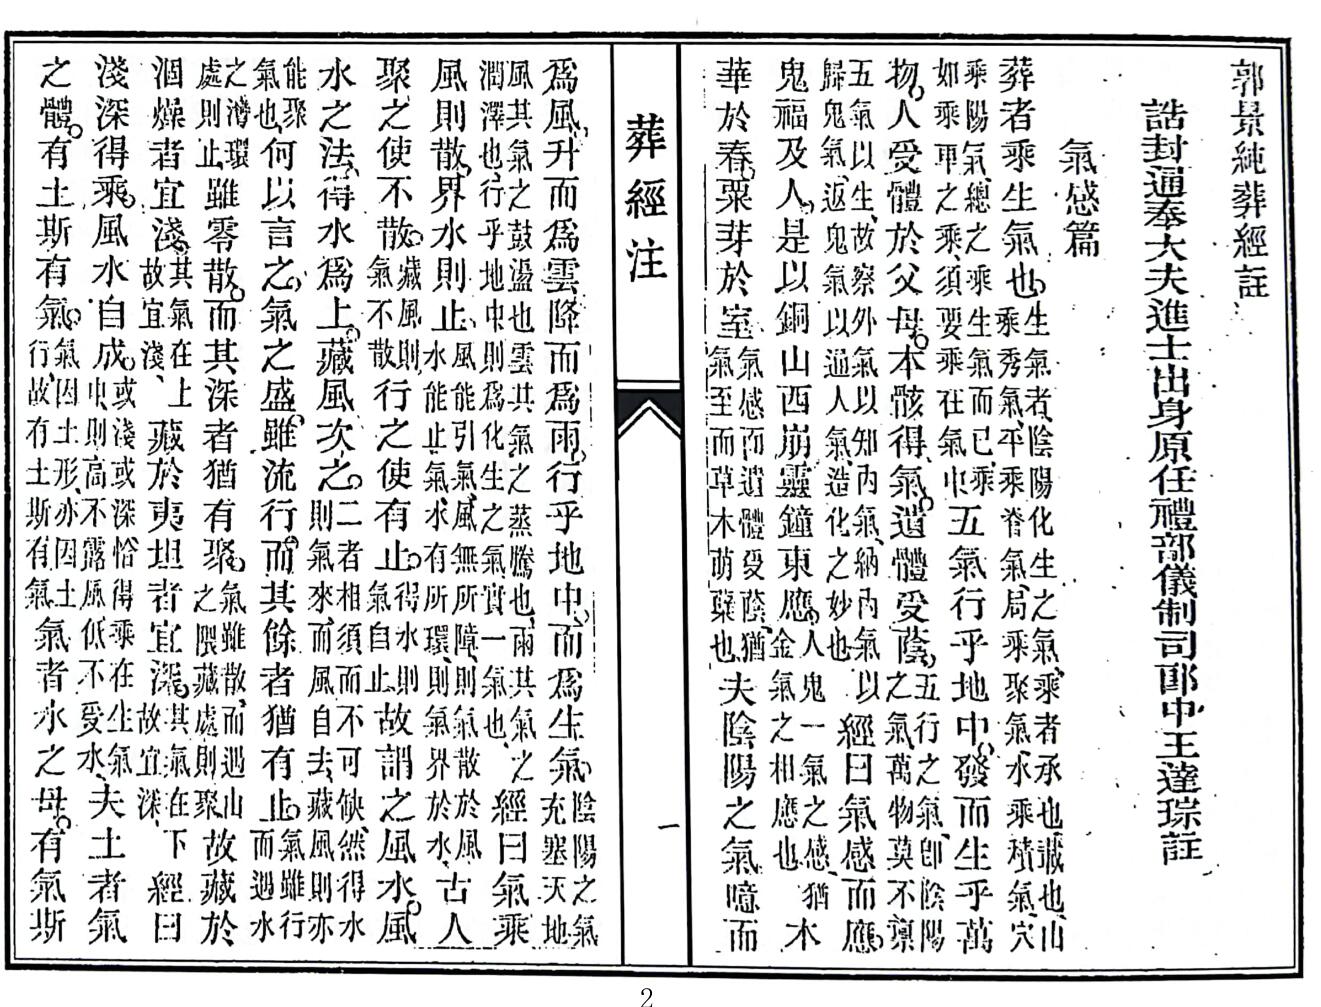 郭景純葬經註
誥封通奉大夫進士出身原任禮部儀制司郎中王達琮註
氣感篇
葬者乘生氣也生氣者陰陽化生之氣乘者承也載也山乘秀氣平乘脊氣局乘聚氣水乘積氣穴
乘陽氣總之乘生氣而已乘如乘耶之乘須要乘在氣中五氣行乎地中發而生乎萬
物人受體於父母本骸得氣遺體受蔭五行之氣卽陰陽之氣萬物莫不稟
五氣以生故察外氣以知內氣納內氣以歸鬼氣返鬼氣以通人氣造化之妙也經曰氣感而應
鬼福及人是以銅山西崩靈鐘東應人鬼一氣之感猶金氣之相應也木
華於春粟芽於室氣感而遺體受蔭猶氣至而草木萌蘖也夫陰陽之氣噫而
葬經注
一
為風升而為雲降而為雨行乎地中而為生氣陰陽之氣充塞天地
風其氣之鼓盪也雲其氣之蒸騰也雨其氣之潤澤也行乎地中則為化生之氣實一氣也經曰氣乘
風則散界水則止風能引氣風無所障則氣散於風水能止氣水有所環則氣界於水古人
聚之使不散藏風則氣不散行之使有止得水則氣自止故謂之風水風
水之法得水為上藏風次之二者相須而不可缺然得水則氣來而風自去藏風則亦
能聚氣也何以言之氣之盛雖流行而其餘者猶有止氣雖行而遇水
之灣環處則止雖零散而其深者猶有聚氣雖散而遇山之隈藏處則聚故藏於
涸燥者宜淺其氣在上故宜淺藏於夷坦者宜深其氣在下故宜深經曰
淺深得乘風水自成或淺或深恰得乘在生氣中則高不露風低不受水夫土者氣
之體有土斯有氣氣因土形亦因土行故有土斯有氣氣者水之母有氣斯
2